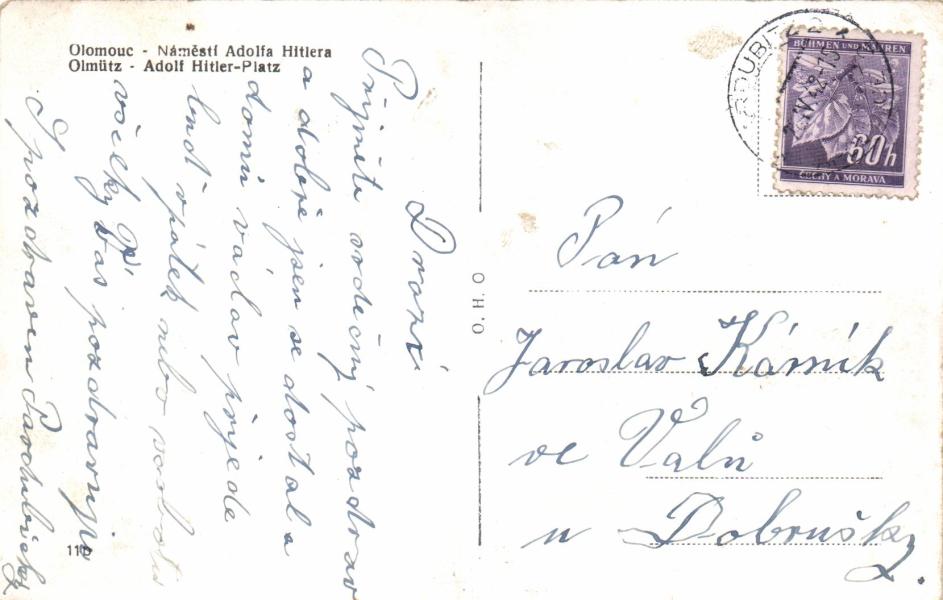 Olomouc - Náměstí Adolfa Hitlera
Olmütz - Adolf Hitler-Platz
Drazí
Přijměte srdečný pozdrav
a dobře jsem se dostal a
domů václav přijede
buď v pátek nebo v sobotu
všelky Vás pozdravuji
S pozdravem Pardubický
O. H. O
116
BÖHMEN UND MÄHREN
60h
ČECHY A MORAVA
IV. 42-15
Pán
Jaroslav Kárník
ve Valů
u Dobrušky.